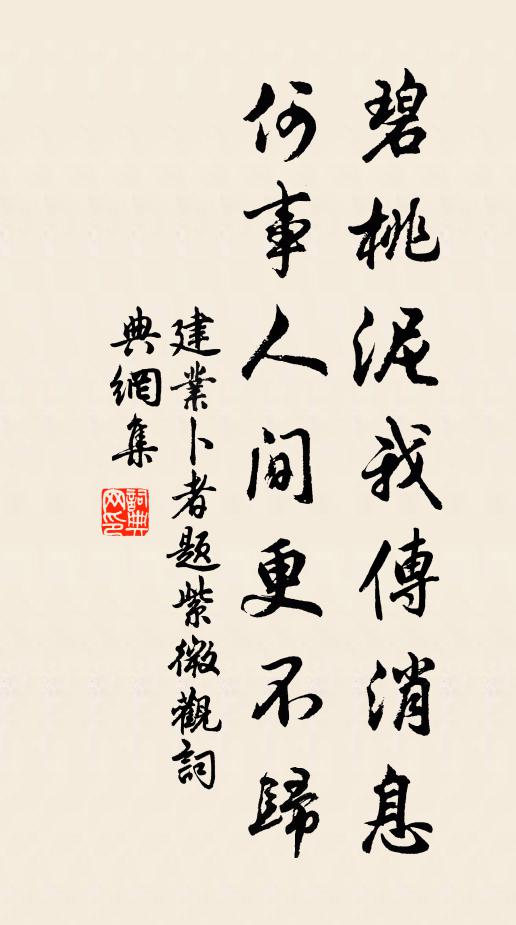 碧桃泥我傳消息
何事人間更不歸
建業卜者題紫微觀詞
典網集
詞典
网印